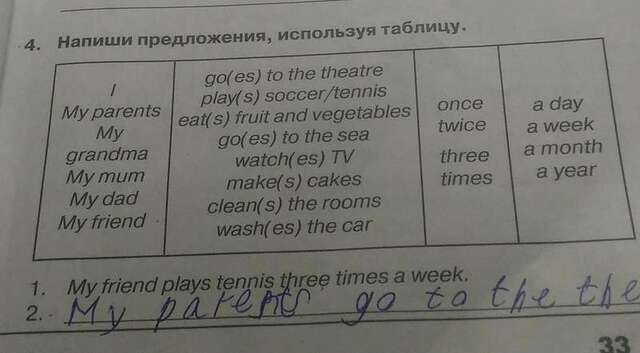 4. Напиши предложения, используя таблицу.
I
My parents
My
grandma
My mum
My dad
My friend
go(es) to the theatre
play(s) soccer/tennis
eat(s) fruit and vegetables
go(es) to the sea
watch(es) TV
make(s) cakes
clean(s) the rooms
wash(es) the car
once
twice
three
times
a day
a week
a month
a year
1. My friend plays tennis three times a week.
2. My parents go to the the
33